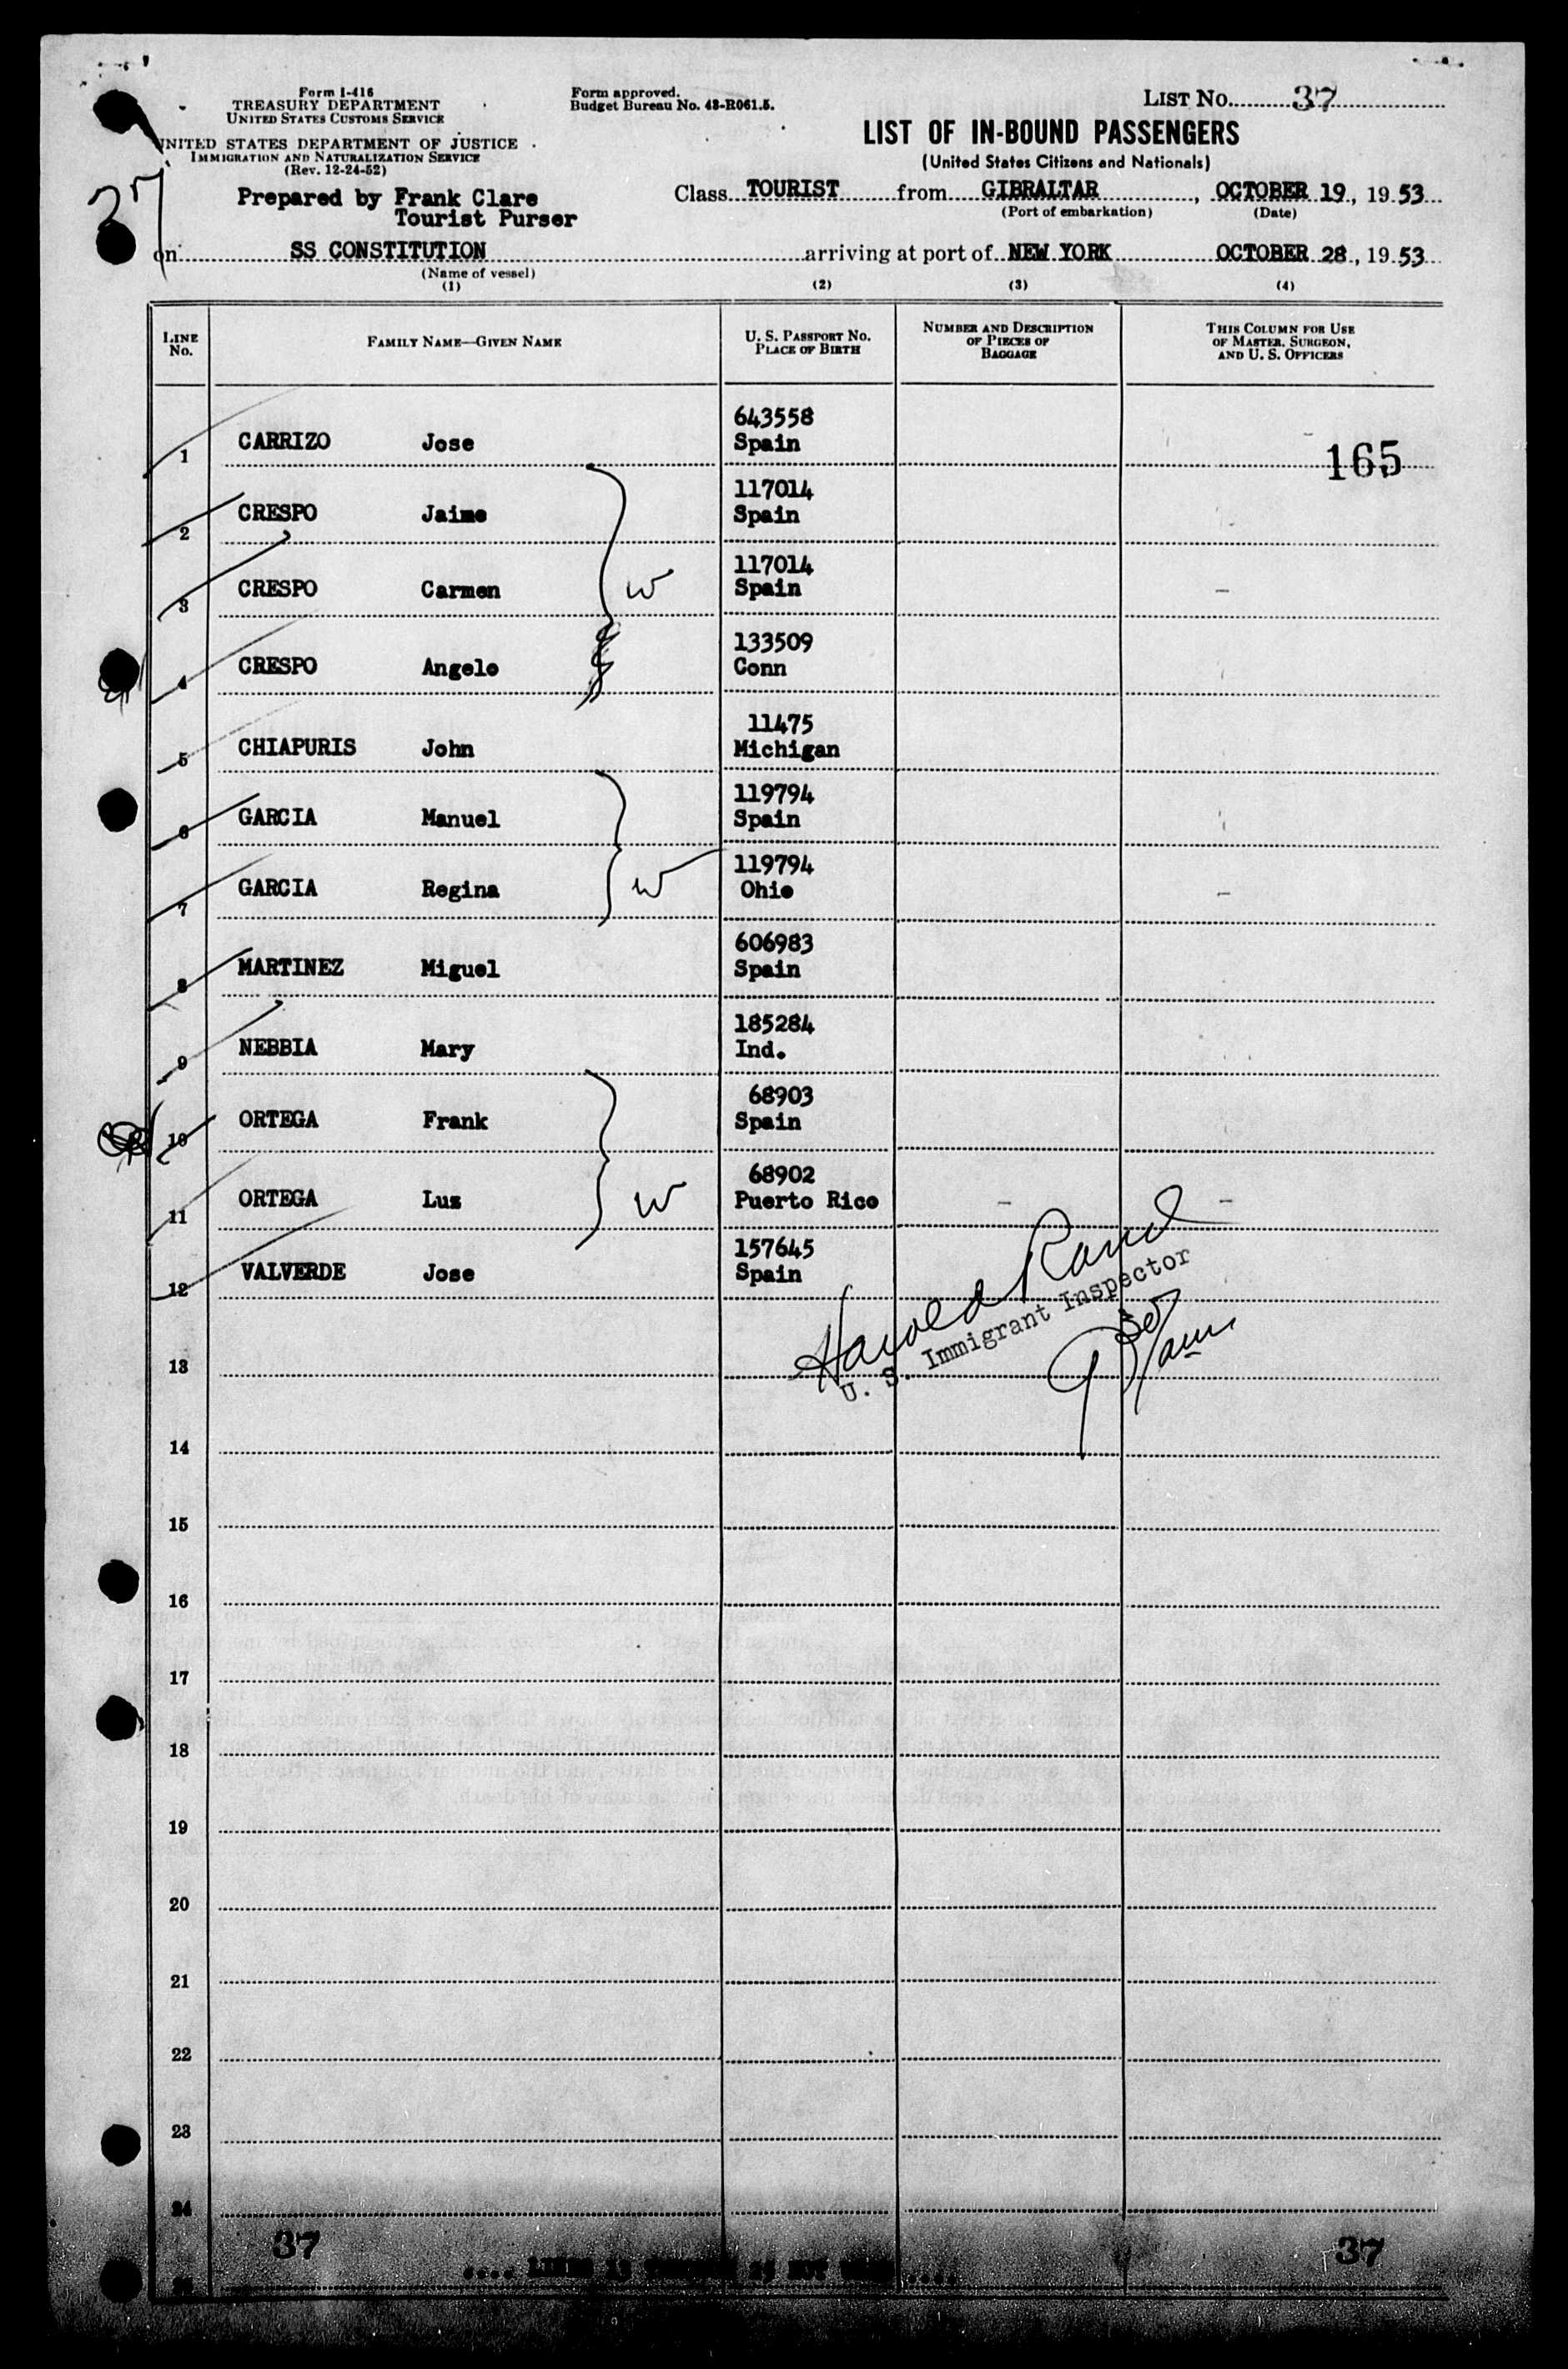 Form I-416
TREASURY DEPARTMENT
UNITED STATES CUSTOMS SERVICE
UNITED STATES DEPARTMENT OF JUSTICE
IMMIGRATION AND NATURALIZATION SERVICE
(Rev. 12-24-52)
Form approved.
Budget Bureau No. 43-R061.5.
LIST No. 37
LIST OF IN-BOUND PASSENGERS
(United States Citizens and Nationals)
37
Prepared by Frank Clare
Tourist Purser
Class TOURIST from GIBRALTAR, OCTOBER 19, 1953
(Port of embarkation) (Date)
on SS CONSTITUTION arriving at port of NEW YORK OCTOBER 28, 1953
(Name of vessel)
(1) (2) (3) (4)
LINE No. FAMILY NAME—GIVEN NAME U. S. PASSPORT No. PLACE OF BIRTH NUMBER AND DESCRIPTION OF PIECES OF BAGGAGE THIS COLUMN FOR USE OF MASTER, SURGEON, AND U. S. OFFICERS
1 CARRIZO Jose 643558 Spain 165
2 CRESPO Jaime 117014 Spain
3 CRESPO Carmen W 117014 Spain -
4 CRESPO Angelo 133509 Conn
5 CHIAPURIS John 11475 Michigan
6 GARCIA Manuel 119794 Spain
7 GARCIA Regina W 119794 Ohio -
8 MARTINEZ Miguel 606983 Spain
9 NEBBIA Mary 185284 Ind.
10 ORTEGA Frank 68903 Spain
11 ORTEGA Luz W 68902 Puerto Rico - -
12 VALVERDE Jose 157645 Spain
Harold Rand
U. S. Immigrant Inspector
13
14
15
16
17
18
19
20
21
22
23
24
37 37
.... LINES 13 THROUGH 25 NOT USED ....